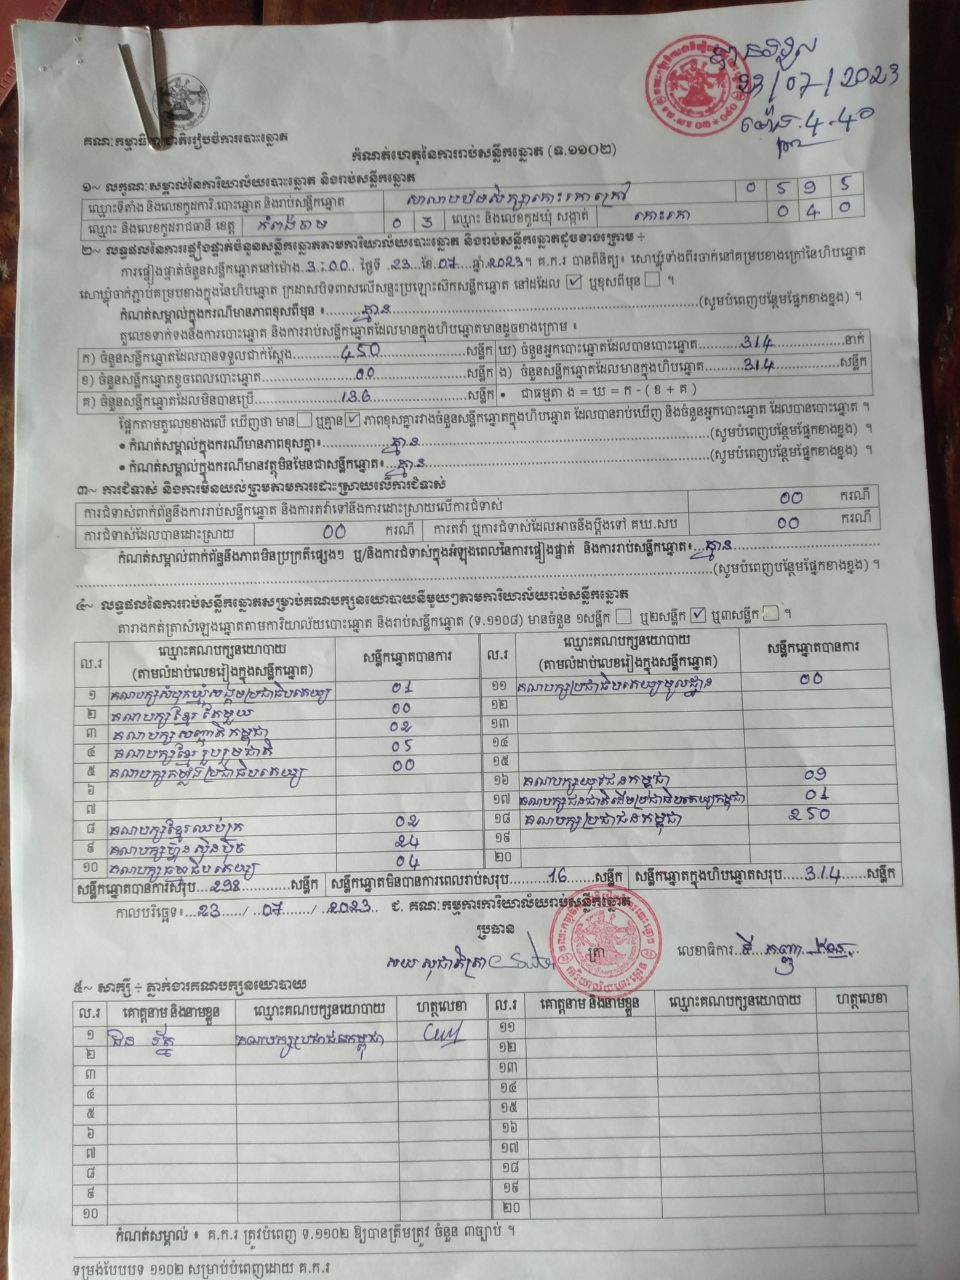 បានទទួល
23/07/2023
ម៉ោង 4-40
គណៈកម្មាធិការជាតិរៀបចំការបោះឆ្នោត
កំណត់ហេតុនៃការរាប់សន្លឹកឆ្នោត (ទ.១១០២)
១~ លក្ខណៈសម្គាល់នៃការិយាល័យបោះឆ្នោត និងរាប់សន្លឹកឆ្នោត
ឈ្មោះទីតាំង និងលេខកូដការិ.បោះឆ្នោត និងរាប់សន្លឹកឆ្នោត សាលាបឋមសិក្សាកោះរកាក្រៅ 0 5 9 5
ឈ្មោះ និងលេខកូដរាជធានី ខេត្ត កំពង់ចាម 0 3 ឈ្មោះ និងលេខកូដឃុំ សង្កាត់ កោះរកា 0 4 0
២~ លទ្ធផលនៃការផ្ទៀងផ្ទាត់ចំនួនសន្លឹកឆ្នោតតាមការិយាល័យបោះឆ្នោត និងរាប់សន្លឹកឆ្នោតដូចខាងក្រោម ÷
ការផ្ទៀងផ្ទាត់ចំនួនសន្លឹកឆ្នោតនៅម៉ោង 3:00 ថ្ងៃទី 23 ខែ 07 ឆ្នាំ 2023។ គ.ក.រ បានពិនិត្យ៖ សោឃ្លុំទាំងពីរចាក់នៅគម្របខាងក្រៅនៃហិបឆ្នោត
សោឃ្លុំចាក់ភ្ជាប់គម្របខាងក្នុងនៃហិបឆ្នោត ក្រដាសបិទពាសលើសន្ទះប្រឡោះស៊កសន្លឹកឆ្នោត នៅដដែល ☑ ឬខុសពីមុន ☐ ។
កំណត់សម្គាល់ក្នុងករណីមានភាពខុសពីមុន ៖ គ្មាន (សូមបំពេញបន្ថែមផ្នែកខាងខ្នង) ។
តួលេខទាក់ទងនឹងការបោះឆ្នោត និងការរាប់សន្លឹកឆ្នោតដែលមានក្នុងហិបឆ្នោតមានដូចខាងក្រោម ៖
ក) ចំនួនសន្លឹកឆ្នោតដែលបានទទួលជាក់ស្តែង 450 សន្លឹក ឃ) ចំនួនអ្នកបោះឆ្នោតដែលបានបោះឆ្នោត 314 នាក់
ខ) ចំនួនសន្លឹកឆ្នោតខូចពេលបោះឆ្នោត 00 សន្លឹក ង) ចំនួនសន្លឹកឆ្នោតដែលមានក្នុងហិបឆ្នោត 314 សន្លឹក
គ) ចំនួនសន្លឹកឆ្នោតដែលមិនបានប្រើ 136 សន្លឹក • ជាធម្មតា ង = ឃ = ក - ( ខ + គ )
ផ្អែកតាមតួលេខខាងលើ ឃើញថា មាន ☐ ឬគ្មាន ☑ ភាពខុសគ្នារវាងចំនួនសន្លឹកឆ្នោតក្នុងហិបឆ្នោត ដែលបានរាប់ឃើញ និងចំនួនអ្នកបោះឆ្នោត ដែលបានបោះឆ្នោត ។
• កំណត់សម្គាល់ក្នុងករណីមានភាពខុសគ្នា៖ គ្មាន (សូមបំពេញបន្ថែមផ្នែកខាងខ្នង) ។
• កំណត់សម្គាល់ក្នុងករណីមានវត្ថុមិនមែនជាសន្លឹកឆ្នោត៖ គ្មាន (សូមបំពេញបន្ថែមផ្នែកខាងខ្នង) ។
៣~ ការជំទាស់ និងការមិនយល់ព្រមតាមការដោះស្រាយលើការជំទាស់
ការជំទាស់ពាក់ព័ន្ធនឹងការរាប់សន្លឹកឆ្នោត និងការតវ៉ាទៅនឹងការដោះស្រាយលើការជំទាស់ 00 ករណី
ការជំទាស់ដែលបានដោះស្រាយ 00 ករណី ការតវ៉ា ឬការជំទាស់ដែលអាចនឹងប្តឹងទៅ គឃ.សប 00 ករណី
កំណត់សម្គាល់ពាក់ព័ន្ធនឹងភាពមិនប្រក្រតីផ្សេងៗ ឬ/និងការជំទាស់ក្នុងអំឡុងពេលនៃការផ្ទៀងផ្ទាត់ និងការរាប់សន្លឹកឆ្នោត៖ គ្មាន
(សូមបំពេញបន្ថែមផ្នែកខាងខ្នង) ។
៤~ លទ្ធផលនៃការរាប់សន្លឹកឆ្នោតសម្រាប់គណបក្សនយោបាយនីមួយៗតាមការិយាល័យរាប់សន្លឹកឆ្នោត
តារាងកត់ត្រាសំឡេងឆ្នោតតាមការិយាល័យបោះឆ្នោត និងរាប់សន្លឹកឆ្នោត (ទ.១១០៨) មានចំនួន ១សន្លឹក ☐ ឬ២សន្លឹក ☑ ឬ៣សន្លឹក ☐ ។
ល.រ ឈ្មោះគណបក្សនយោបាយ (តាមលំដាប់លេខរៀងក្នុងសន្លឹកឆ្នោត) សន្លឹកឆ្នោតបានការ ល.រ ឈ្មោះគណបក្សនយោបាយ (តាមលំដាប់លេខរៀងក្នុងសន្លឹកឆ្នោត) សន្លឹកឆ្នោតបានការ
១ គណបក្សសំបុកឃ្មុំសង្គមប្រជាធិបតេយ្យ 01 ១១ គណបក្សប្រជាធិបតេយ្យមូលដ្ឋាន 00
២ គណបក្សខ្មែរតែមួយ 00 ១២
៣ គណបក្សសញ្ជាតិកម្ពុជា 02 ១៣
៤ គណបក្សខ្មែររួបរួមជាតិ 05 ១៤
៥ គណបក្សកម្លាំងប្រជាធិបតេយ្យ 00 ១៥
៦ ១៦ គណបក្សយុវជនកម្ពុជា 09
៧ ១៧ គណបក្សជនជាតិដើមប្រជាធិបតេយ្យកម្ពុជា 01
៨ គណបក្សខ្មែរឈប់ក្រ 02 ១៨ គណបក្សប្រជាជនកម្ពុជា 250
៩ គណបក្សហ៊្វុនស៊ិនប៉ិច 24 ១៩
១០ គណបក្សធម្មាធិបតេយ្យ 04 ២០
សន្លឹកឆ្នោតបានការសរុប 298 សន្លឹក សន្លឹកឆ្នោតមិនបានការពេលរាប់សរុប 16 សន្លឹក សន្លឹកឆ្នោតក្នុងហិបឆ្នោតសរុប 314 សន្លឹក
កាលបរិច្ឆេទ៖ 23 / 07 / 2023 ជ. គណៈកម្មការការិយាល័យរាប់សន្លឹកឆ្នោត
ប្រធាន ត្រា លេខាធិការ
៥~ សាក្សី ÷ ភ្នាក់ងារគណបក្សនយោបាយ
ល.រ គោត្តនាម និងនាមខ្លួន ឈ្មោះគណបក្សនយោបាយ ហត្ថលេខា ល.រ គោត្តនាម និងនាមខ្លួន ឈ្មោះគណបក្សនយោបាយ ហត្ថលេខា
១ គណបក្សប្រជាជនកម្ពុជា ១១
២ ១២
៣ ១៣
៤ ១៤
៥ ១៥
៦ ១៦
៧ ១៧
៨ ១៨
៩ ១៩
១០ ២០
កំណត់សម្គាល់ ៖ គ.ក.រ ត្រូវបំពេញ ទ.១១០២ ឱ្យបានត្រឹមត្រូវ ចំនួន ៣ច្បាប់ ។
ទម្រង់បែបបទ ១១០២ សម្រាប់បំពេញដោយ គ.ក.រ